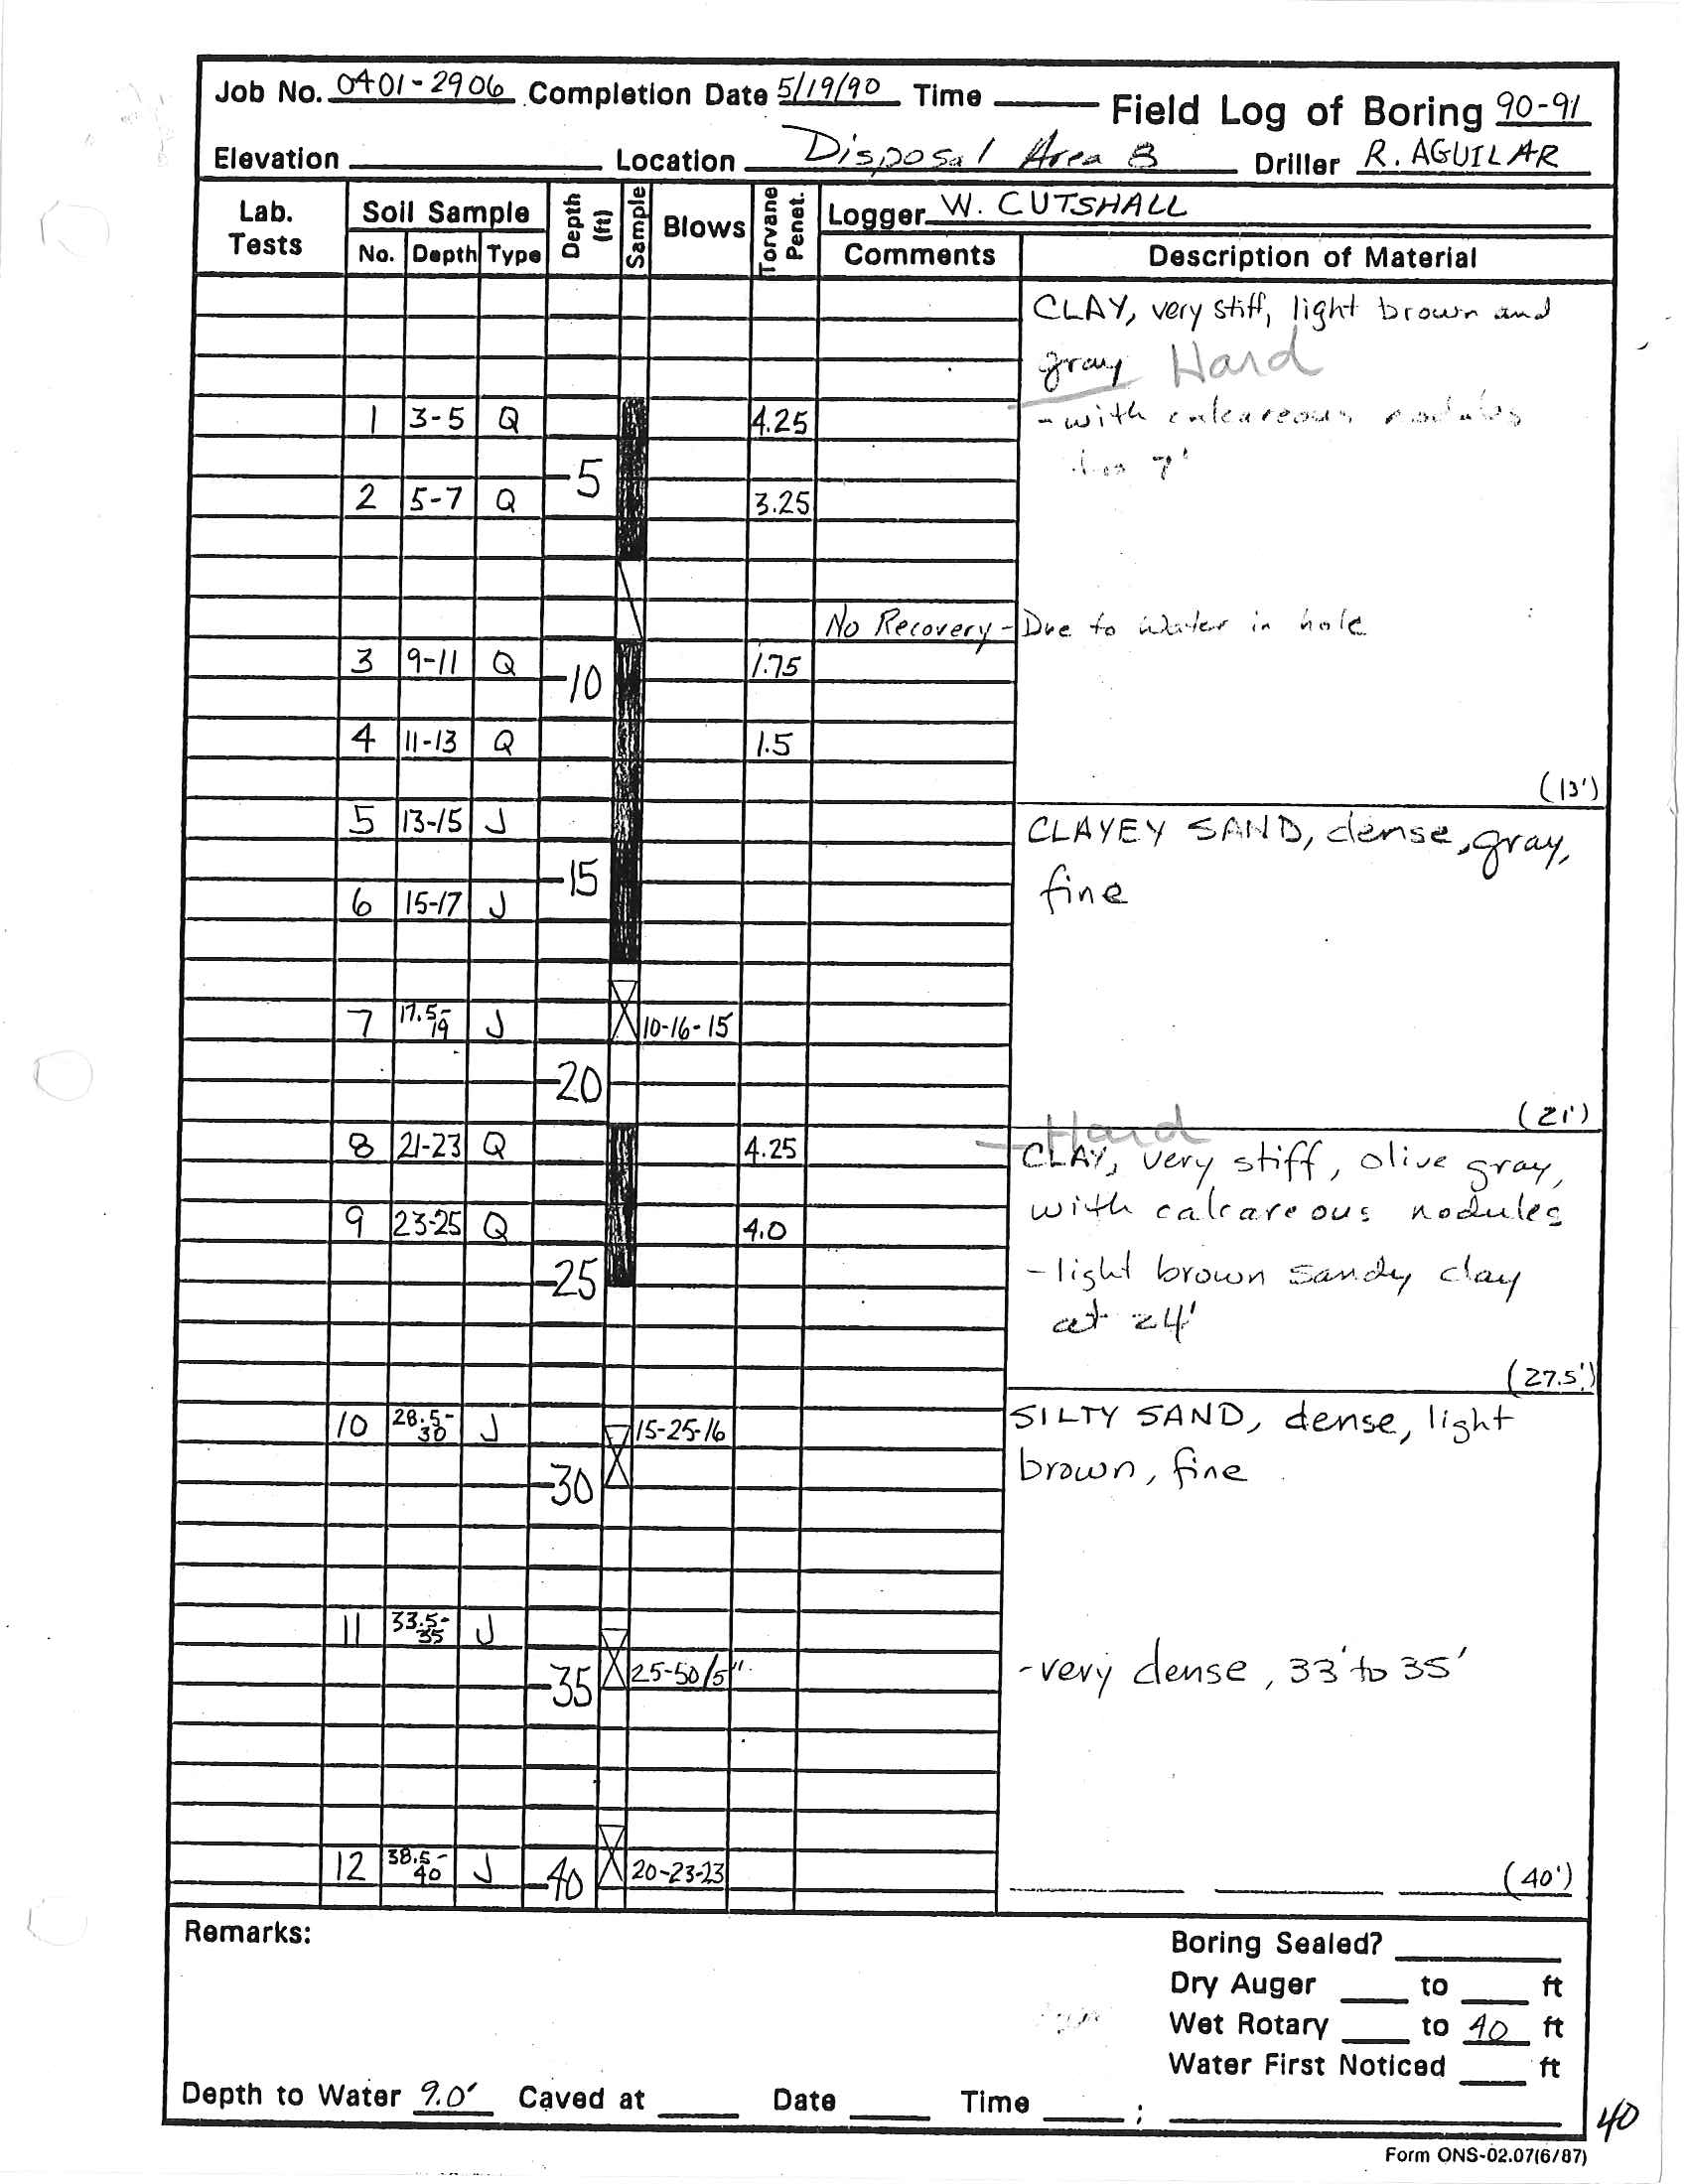 Job No. 0401-2906 Completion Date 5/19/90 Time Field Log of Boring 90-91
Elevation Location Disposal Area 8 Driller R. AGUILAR
Lab. Tests Soil Sample Depth (ft) Sample Blows Torvane Penet. Logger W. CUTSHALL
No. Depth Type Comments Description of Material
CLAY, very stiff, light brown and
gray Hard
1 3-5 Q 4.25 - with calcareous nodules
5 7'
2 5-7 Q 3.25
No Recovery - Due to water in hole
3 9-11 Q 10 1.75
4 11-13 Q 1.5
(13')
5 13-15 J CLAYEY SAND, dense, gray,
15 fine
6 15-17 J
7 17.5-19 J 10-16-15
20
(21')
Hard
8 21-23 Q 4.25 CLAY, very stiff, olive gray,
with calcareous nodules
9 23-25 Q 4.0
25 - light brown sandy clay
at 24'
(27.5')
10 28.5-30 J 15-25-16 SILTY SAND, dense, light
30 brown, fine
11 33.5-35 J
35 25-50/5" - very dense, 33' to 35'
12 38.5-40 J 40 20-23-23 (40')
Remarks:
Boring Sealed?
Dry Auger to ft
Wet Rotary to 40 ft
Water First Noticed ft
Depth to Water 9.0' Caved at Date Time ;
40
Form ONS-02.07(6/87)